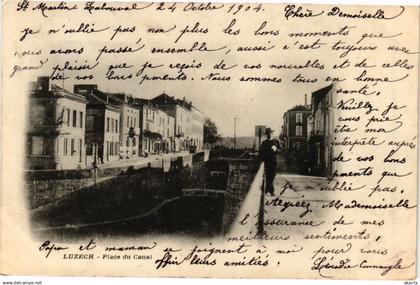 St Martin Labouval 24 Octobre 1904. Chère Demoiselle
je n'oublié pas non plus les bons moments que
nous avons passé ensemble, aussi c'est toujours avec
grand plaisir que je reçois de vos nouvelles et de celles
de vos bons parents. Nous sommes tous en bonne
santé,
Veuillez je
vous prie
être mon
interprète auprès
de vos bons
parents que
je n'oublie pas.
Agréez Mademoiselle
l'assurance de mes
meilleurs sentiments,
papa et maman se joignent à moi pour vous
offrir leurs amitiés.
LUZECH - Place du Canal